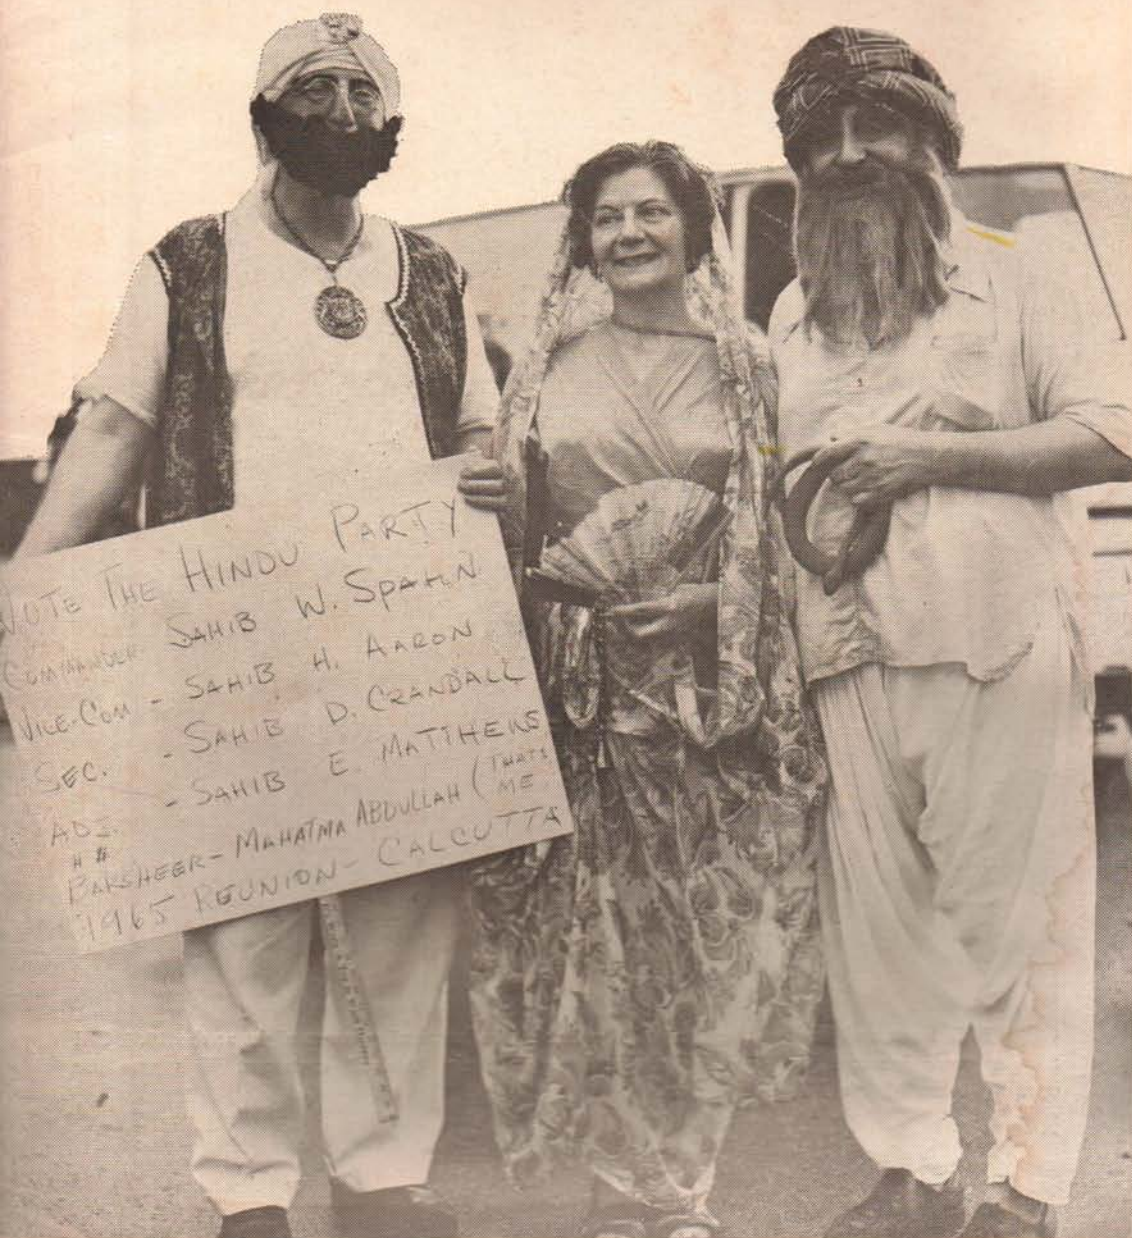 VOTE THE HINDU PARTY
COMMANDER SAHIB W. SPAHN
VICE-COM - SAHIB H. AARON
SEC. - SAHIB D. CRANDALL
ADJ. - SAHIB E. MATTHEWS
BAKSHEER - MAHATMA ABDULLAH (THATS ME
1965 REUNION - CALCUTTA